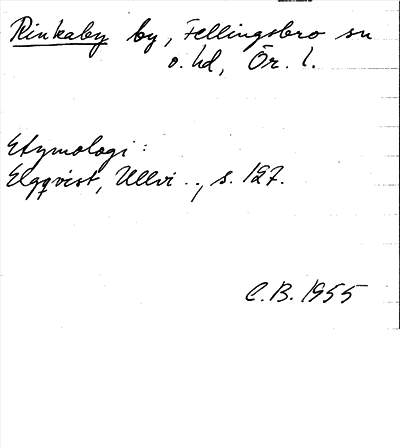 Rinkaby by, Fellingsbro sn
o. hd, Ör. l.
Etymologi:
Elqqvist, Ullvi .., s. 127.
C.B. 1955